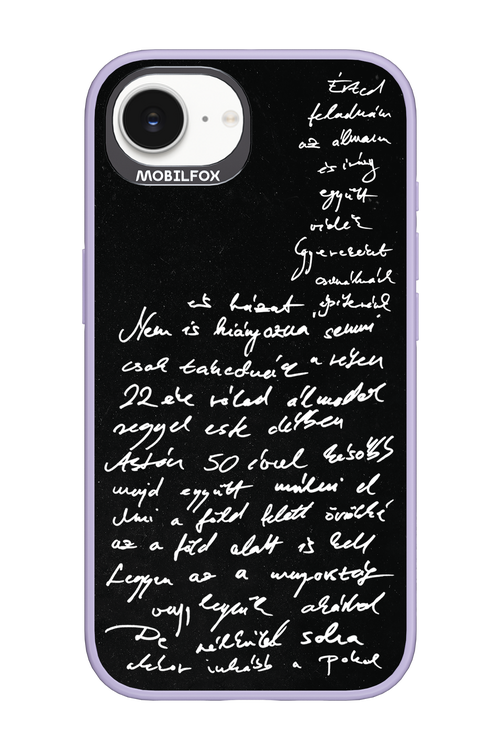 MOBILFOX
Érted
feladnám
az álmaim
és irány
együtt
vidék
Gyerekeket
csinálnék
és házat építenék
Nem is hiányozna semmi
csak takednék a
22 éve rólad álmodok
reggel este délben
Aztán 50 évvel később
majd együtt múlni el
Ami a föld felett örökké
az a föld alatt is kell
Legyen az a mennyország
vagy legyünk akárhol
De nélküled soha
akkor inkább a pokol